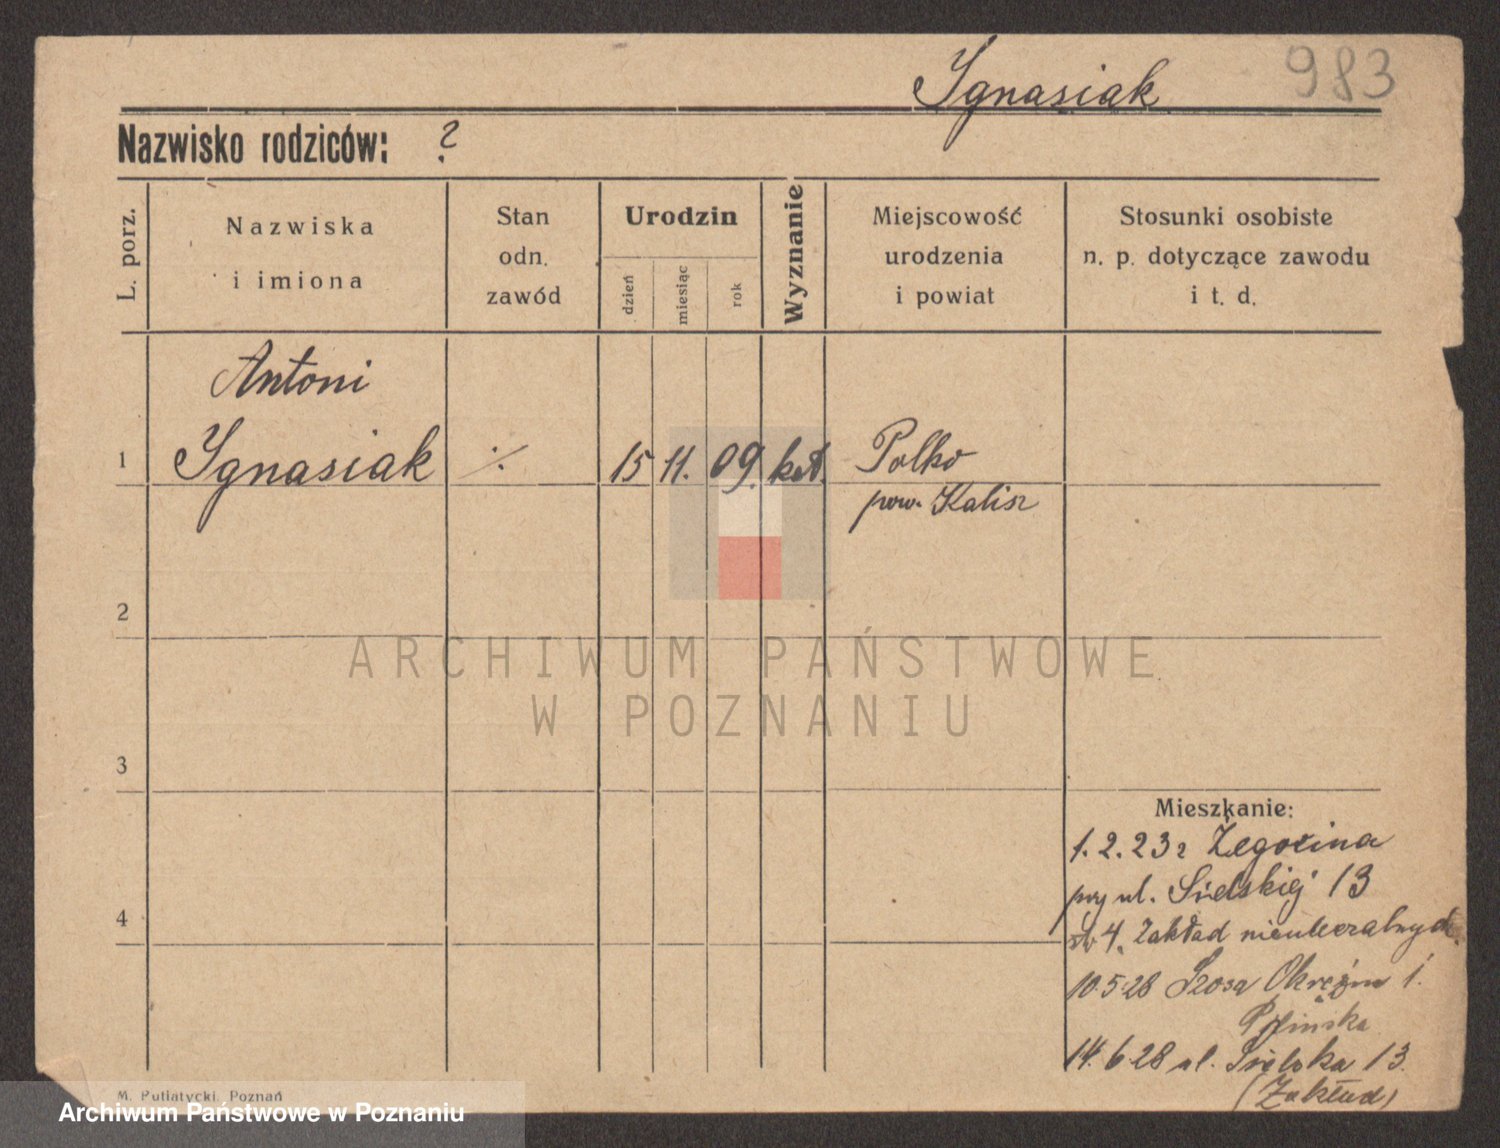 Ignasiak 983
Nazwisko rodziców: ?
L. porz.
Nazwiska
i imiona
Stan
odn.
zawód
Urodzin
dzień
miesiąc
rok
Wyznanie
Miejscowość
urodzenia
i powiat
Stosunki osobiste
n. p. dotyczące zawodu
i t. d.
Antoni
1 Ignasiak ./. 15 11. 09. kat. Polko
pow. Kalisz
2
ARCHIWUM PAŃSTWOWE
W POZNANIU
3
Mieszkanie:
1.2.23 z
ul. 13
4
4. Zakład nieuleczalnych
10.5.28 Szosa Okrężna 1.
14.6.28 ul. 13.
(Zakład)
M. Putiatycki, Poznań
Archiwum Państwowe w Poznaniu